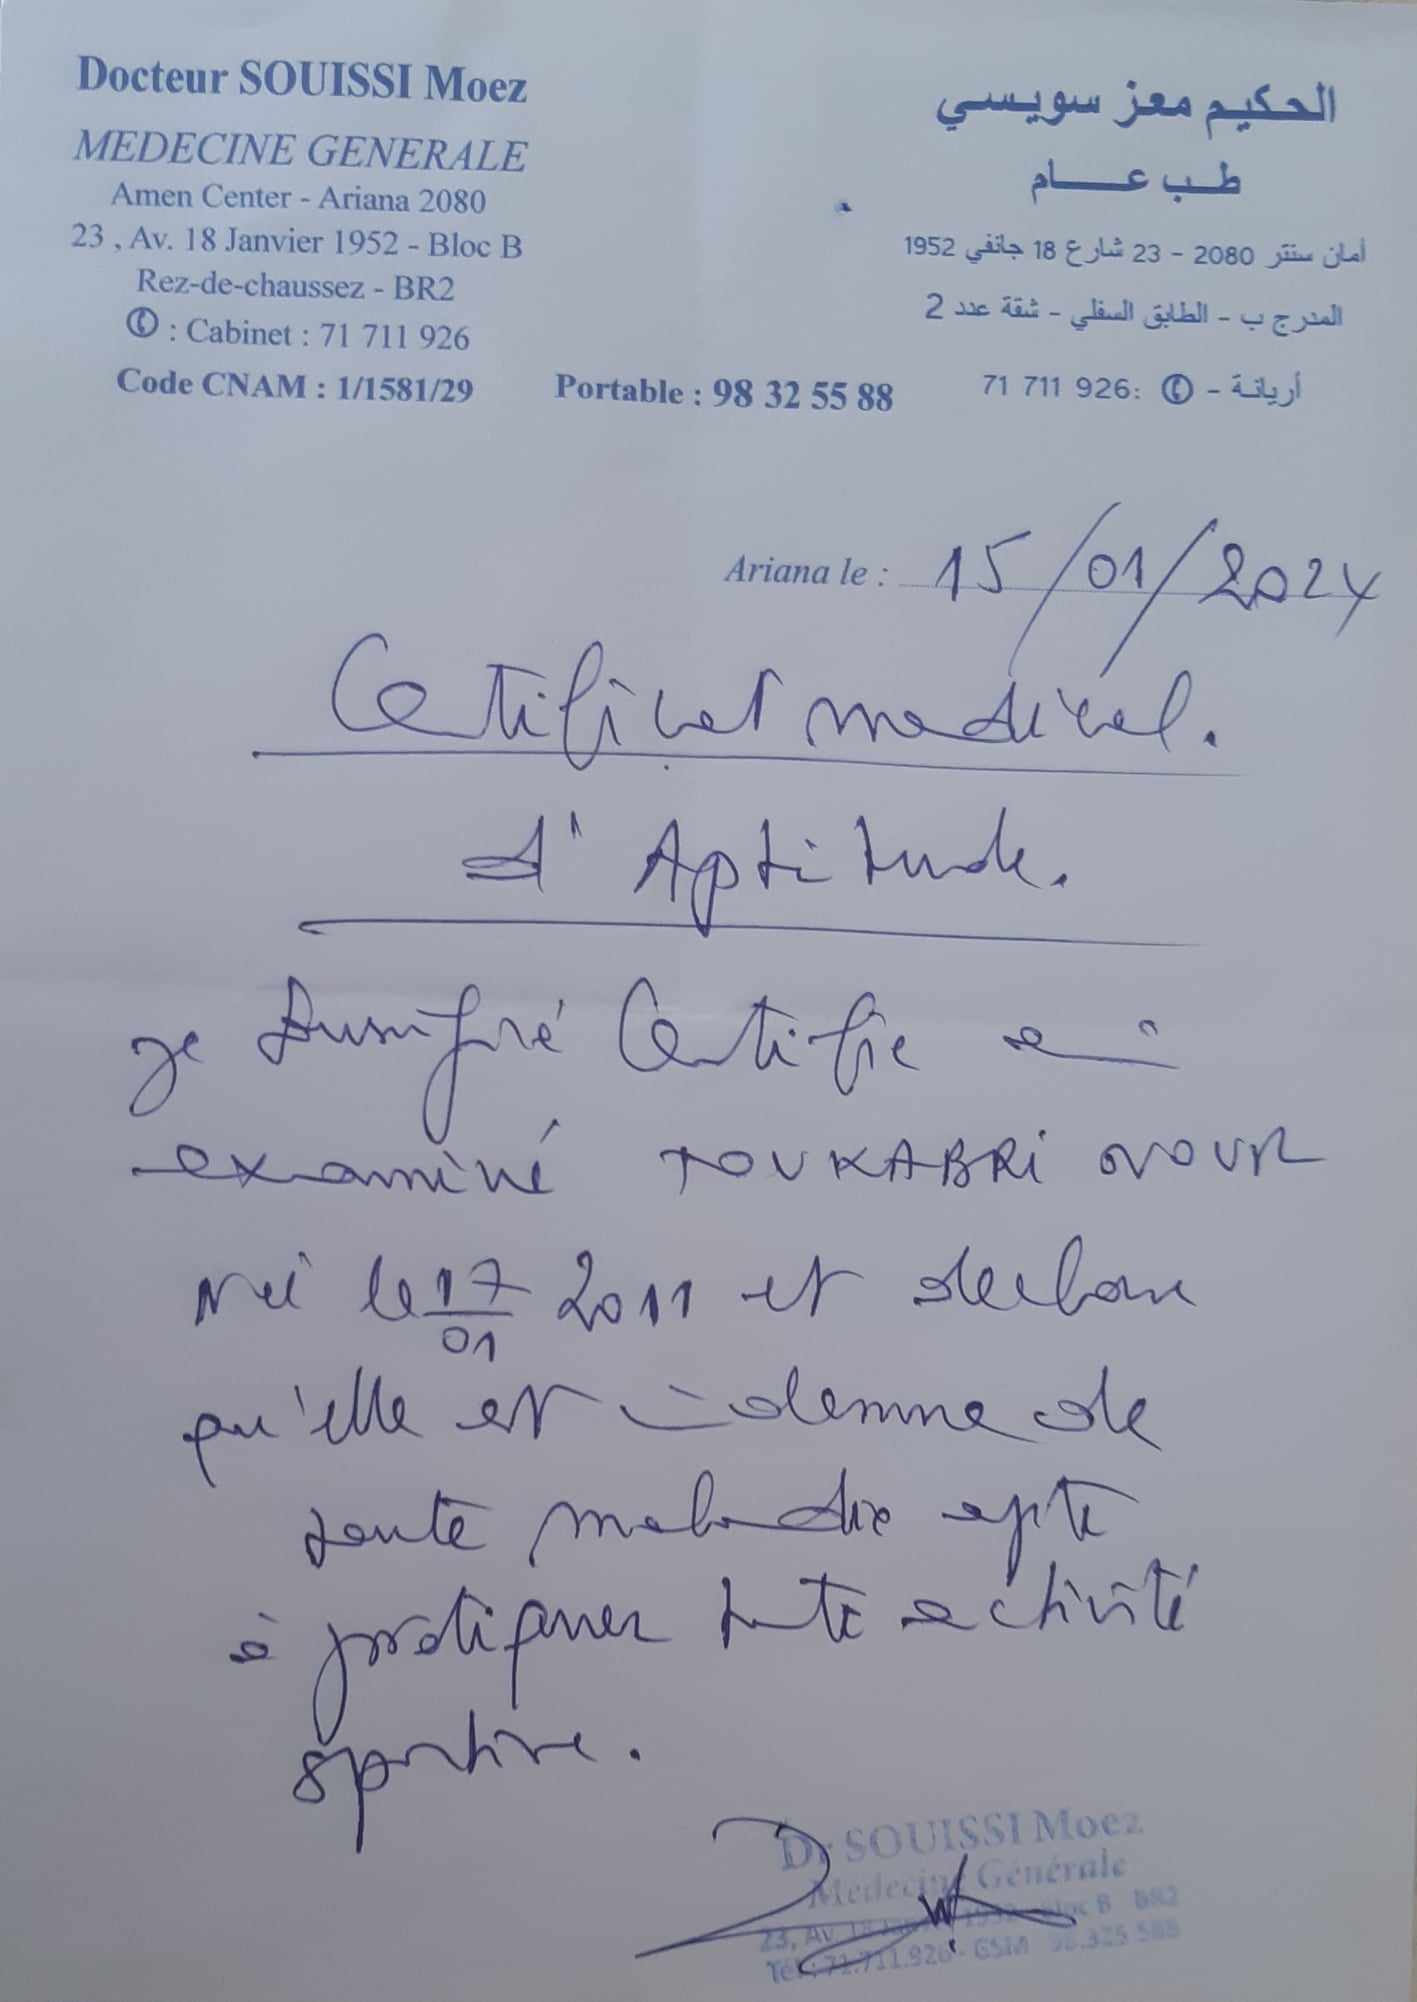 Docteur SOUISSI Moez
MEDECINE GENERALE
Amen Center - Ariana 2080
23 , Av. 18 Janvier 1952 - Bloc B
Rez-de-chaussez - BR2
✆ : Cabinet : 71 711 926
Code CNAM : 1/1581/29
Portable : 98 32 55 88
الحكيم معز سويسي
طب عام
أمان سنتر 2080 - 23 شارع 18 جانفي 1952
المدرج ب - الطابق السفلي - شقة عدد 2
أريانة - ✆ :71 711 926
Ariana le : 15/01/2024
Certificat medical.
d'Aptitude.
je sousigné Certifie
examiné TOUKABRI NOUR
née le 17/01 2011 et declare
qu'elle est indemne de
toute maladie apte
à pratiquer toute activité
sportive.
Dr SOUISSI Moez
Médecine Générale
23, Av. 18 Janvier 1952 - Bloc B BR2
Tél : 71.711.926 - GSM 98.325 588